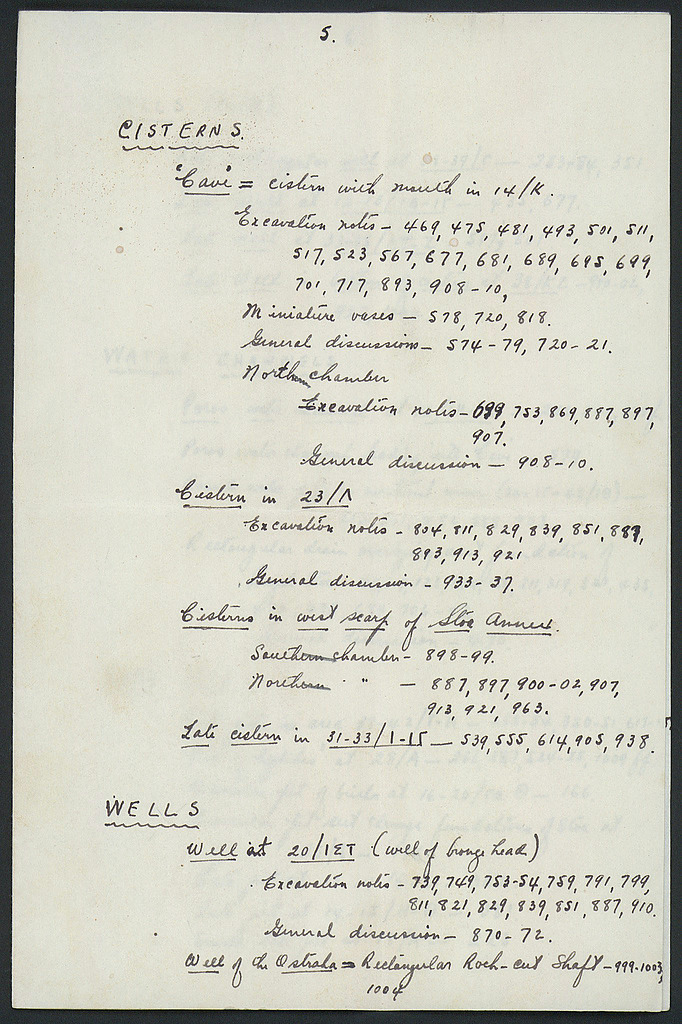 5.
CISTERNS.
"Cave" = cistern with mouth in 14/K.
Excavation notes - 469, 475, 481, 493, 501, 511,
517, 523, 567, 677, 681, 689, 695, 699,
701, 717, 893, 908-10,
Miniature vases - 578, 720, 818.
General discussions - 574-79, 720-21.
Northern chamber
Excavation notes - 699, 753, 869, 887, 897,
907.
General discussion - 908-10.
Cistern in 23/Λ
Excavation notes - 804, 811, 829, 839, 851, 887,
893, 913, 921
General discussion - 933-37.
Cisterns in west scarp of Stoa Annex.
Southern chamber - 898-99.
Northern " - 887, 897, 900-02, 907,
913, 921, 963.
Late cistern in 31-33/1-15 - 539, 555, 614, 905, 938.
WELLS
Well at 20/ΙΣΤ (well of bronze head)
Excavation notes - 739, 749, 753-54, 759, 791, 799,
811, 821, 829, 839, 851, 887, 910.
General discussion - 870-72.
Well of the Ostraka = Rectangular Rock-cut Shaft - 999-1003,
1004